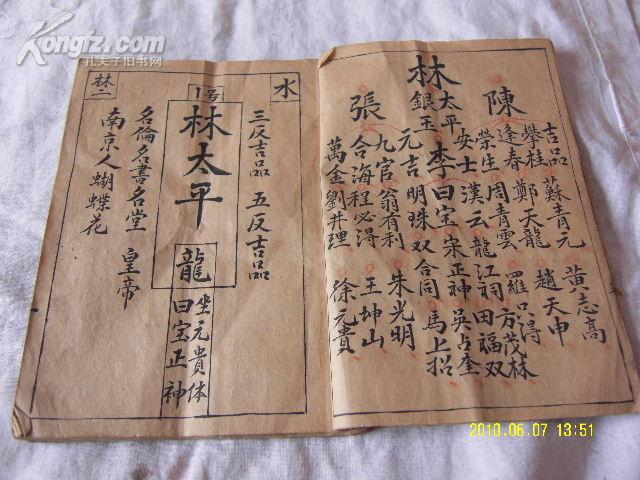 Kongfz.com
孔夫子旧书网
陳
吉品 蘇青元
黃志高
攀桂 鄭天龍 趙天申
逢春 周青雲 羅只得
榮生 龍江祠 方茂林
安士 田福双
林
太平
銀玉
李漢云 宋正神 吳占奎
曰宝 馬上招
張
元吉 明珠 双合同
九官 翁有利 朱光明
合海 程必得 王坤山
萬金 劉井理 徐元貴
水
三反吉品 五反吉品
1号
林太平
龍
坐元貴体
曰宝正神
名倫名書名堂 皇帝
南京人蝴蝶花
林二
2010.06.07 13:51